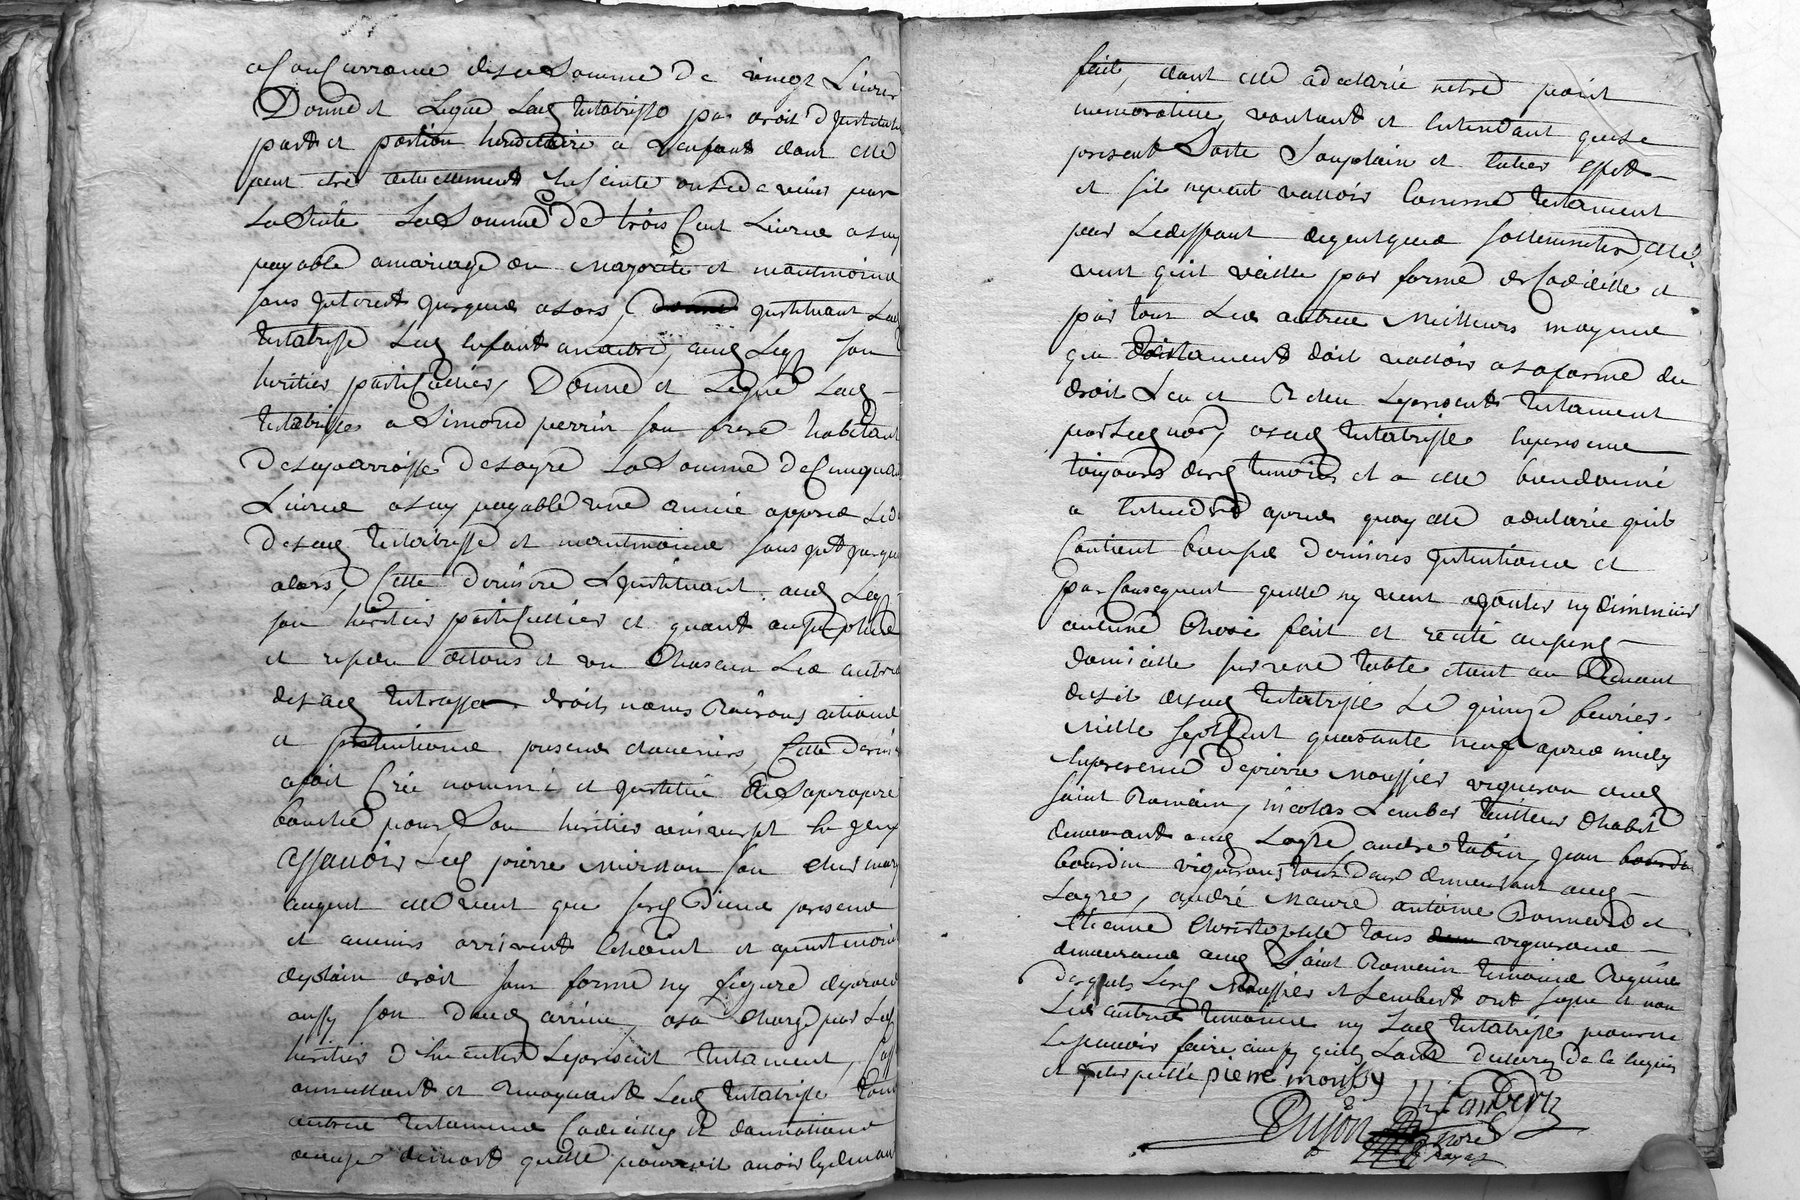 a Concurrance de la Somme de vingt Livres
Donne et Legue Lad testatrisse par droit d'Jnstitution
part et portion hereditaire a L'enfant dont elle
peut etre actuellement Enceinte ou de a venir par
La Suite La Somme de trois Cent Livres a luy
payable a mariage ou Majorité et neantmoins
sans Jnterest Jusques alors, Jnstituant Lad
testatrisse Led Enfant a naitre, aud Legs son
heritier particullier, Donne et Legue Lad
testatrisse a Simond perrin son frere habitant
de la parroisse de Loyre La Somme de Cinquante
Livres a luy payable une année apprès Le decés
de Lad testatrisse et neantmoins sans Jnt Jusques
alors, Cette derniere L'Jnstituant aud Legs
son héritier particullier et quant au surplus
et residu de tous et un Chascun Les autres
de Lad testatrisse droits noms Raisons actions
et pretentions presens et avenirs, Cette derniere
a fait Créé nommé et Jnstitué de Sa propre
bouche pour Son héritier universel
assavoir Led pierre mirmon son cher mary
auquel elle veut que Sesd biens presens
et avenirs arrivent Echoient et apartiennent
de plain droit sans forme ny figure de procés
aussy son deceds arrivé, a la Charge par Led
héritier d'Executer Le present testament, Cassant
annullant et revoquant Lad testatrisse tous
autres testamens Codicilles et donnations
a cause de mort qu'elle pourroit avoir Cydevant
faits, dont elle a declaré netre point
memorative, voulant et Entendant que Le
present Sorte Son plain et Entier effet
et s'il ne peut valloir Comme testament
par Le deffaut de quelque sollemnités, elle
veut qu'il vaille par forme de Codicille et
par tous Les autres Meilleurs moyens
que testament doit valloir a la forme du
droit Leu et Releu Le present testament
par Led notre, a Lad testatrisse En presence
toujours desd temoins et a elle bien donné
a Entendre apres quoy elle a declaré qu'il
Contient bien ses dernieres Jntentions et
par Consequent qu'elle ny veut ajouter ny diminuer
aucune Chose fait et recité au susd
domicille sur une table etant au devant
du lit de Lad testatrisse Le quinze fevrier
Mille Sept Cent quarante neuf apres midy
En presence de pierre Moussier vigneron aud
Saint Romain, nicolas Lember tailleur d'habit
demeurant aud Loyre, andré tabin, Jean
bourdin vignerons tous deux demeurant aud
Loyre, andré Maure antoine Bonnard et
Etienne Christophle tous vignerons
demeurans aud Saint Romain temoins Requis
desquels Lesd Moussier et Lembert ont signé et non
Les autres temoins ny Lad testatrisse pour ne
Le sçavoir faire ainsy qu'ils L'ont declaré de ce Enquis
et Jnterpellé pierre mousy
N Lambert
Dujon